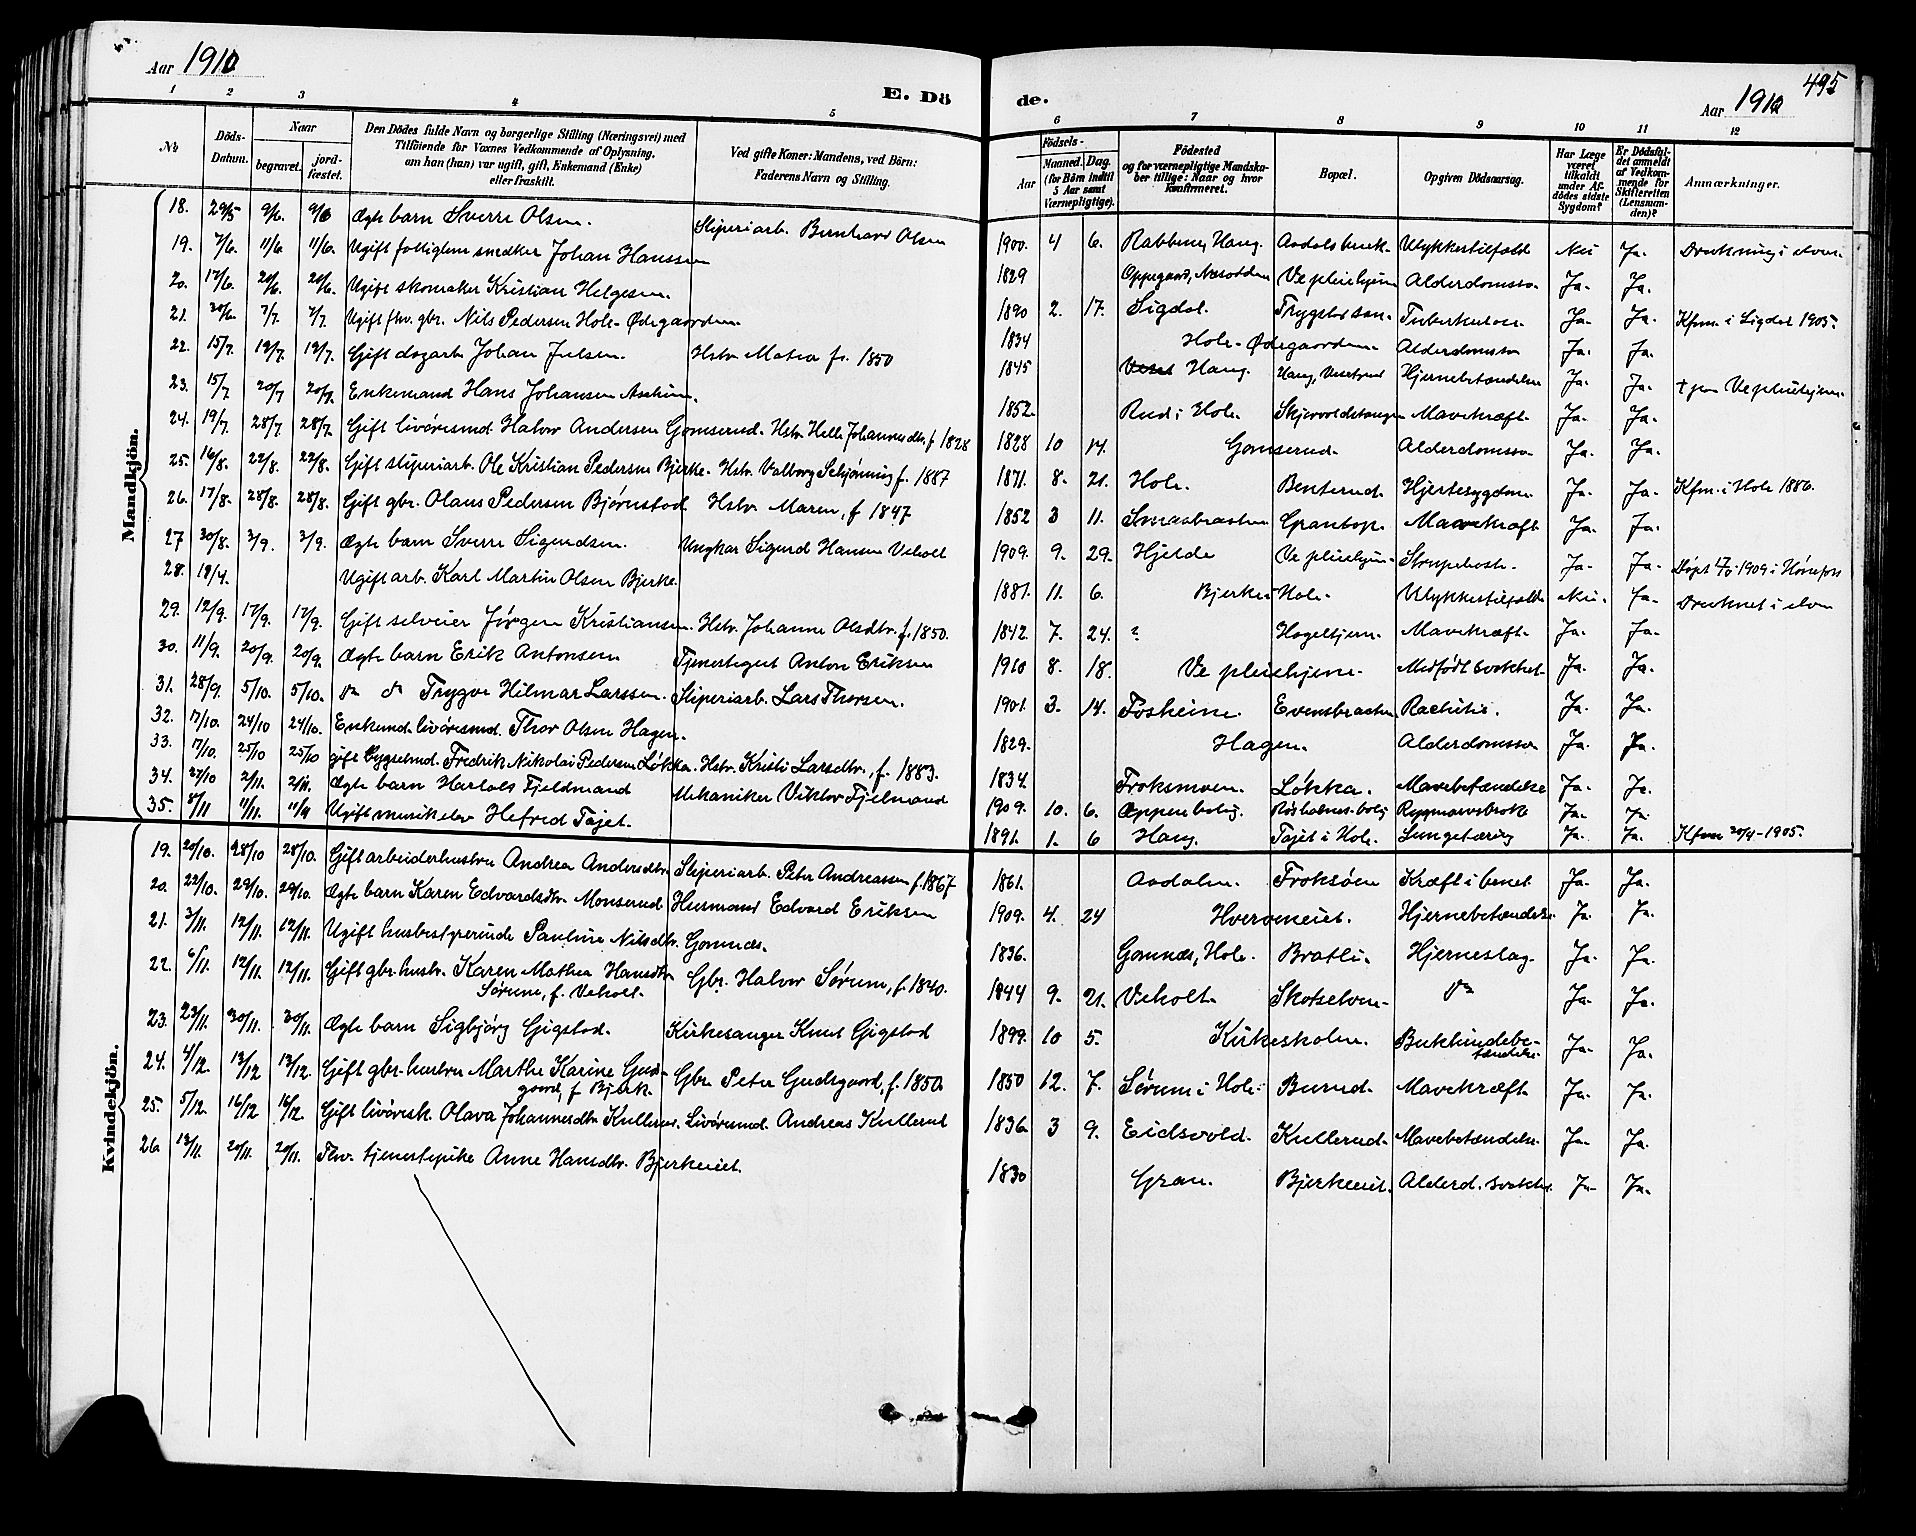 Aar 1910
E. Dö
de.
Aar 1910
495
1 2 3 4 5 6 7 8 9 10 11 12
No
Döds-Datum.
Naar
begravet.
jordfæstet.
Den Dödes fulde Navn og borgerlige Stilling (Næringsvei) med
Tilföiende for Voxnes Vedkommende af Oplysning,
om han (hun) var ugift, gift, Enkemand (Enke)
eller fraskilt.
Ved gifte Koner: Mandens, ved Börn:
Faderens Navn og Stilling.
Födsels-
Aar
Maaned. Dag.
(for Börn indtil
5 Aar samt
Værnepligtige).
Födested
og for værnepligtige Mandskaber
tillige: Naar og hvor
Konfirmeret.
Bopæl.
Opgiven Dödsaarsag.
Har Læge
været
tilkaldt
under Afdödes
sidste
Sygdom?
Er Dödsfaldet
anmeldt
af Vedkommende
for
Skifteretten
(Lensmanden)?
Anmærkninger.
Mandkjön.
18. 29/5 9/6. 9/6 Ægte barn Sverre Olsen. Sliperiarb. Bernhard Olsen 1900. 4 6. Rabbene, Haug. Aadalsbruk. Ulykkestilfæld Nei Ja. Drukning i elven.
19. 7/6. 11/6 11/6. Ugift fattiglem snedker Johan Hanssen 1829 Oppegaard, Nesodden Ve pleiehjem Alderdomssv. Ja. Ja.
20. 17/6. 20/6. 20/6. Ugift skomaker Kristian Helgesen. 1890 2. 17. Sigdal. Trygstad san. Tuberkulose Ja. Ja. Kfm. i Sigdal 1905.
21. 30/6 7/7. 7/7. Ugift fhv. gbr. Nils Pedersen Hole-Ødegaarden 1834 Hole-Ødegaarden. Alderdomssv. Ja. Ja.
22. 15/7. 19/7. 19/7. Gift dagarb. Johan Julsen. Hstr. Matea f. 1850 1845 Haug. Haug, Hjernebetændelse Ja. Ja. + paa Ve pleiehjem.
23. 15/7 20/7 20/7. Enkemand Hans Johansen 1852. Rud i Hole. Skjærvoldstangen Mavekræft. Ja. Ja.
24. 19/7. 28/7 28/7. Gift livøresmd. Halvor Andersen Gomserud. Hstr. Helle Johannesdtr. f. 1828 1828 10 14. Gomserud. Alderdomssv. Ja. Ja.
25. 16/8. 22/8. 22/8. Gift sliperiarb. Ole Kristian Pedersen Bjerke. Hstr. Valborg Schjønning f. 1887 1871. 8. 21. Hole. Benterud. Hjertesygdom Ja. Ja. Kfm. i Hole 1886.
26. 17/8. 28/8. 28/8. Gift gbr. Olaus Pedersen Bjørnstad Hstr. Maren, f 1847 1852 3 11. Smaabraaten Grantop. Mavekræft Ja. Ja.
27 30/8. 3/9. 3/9. Ægte barn Sverre Sigurdsen. Ungkar Sigurd Hansen Veholt 1909. 9. 29. Hjelde Ve pleiehjem. Strupehoste. Ja. Ja. Døpt 1909 i Hønefos
28. 19/4. Ugift arb. Karl Martin Olsen Bjerke. 1881. 11. 6. Bjerke i Hole. Ulykkestilfælde Nei. Ja. Druknet i elven
29. 12/9. 17/9. 17/9. Gift selveier Jørgen Kristiansen. Hstr. Johanne Olsdtr. f. 1850. 1842. 7. 24. ? Hogeltjern. Mavekræft. Ja. Ja.
30. 11/9. 20/9. 20/9. Ægte barn Erik Antonsen Tjenestegut Anton Eriksen 1910 8. 18. Ve pleiehjem. Medfødt svakhet. Ja. Ja.
31. 28/9. 5/10. 5/10. do do Trygve Hilmar Larssen. Sliperiarb. Lars Thorsen. 1901. 3. 14. Fosheim. Evensbraaten Rachitis. Ja. Ja.
32. 17/10. 24/10 24/10. Enkemd. livøresmd. Thor Olsen Hagen. 1829. Hagen. Alderdomssv. Ja. Ja.
33. 17/10. 25/10 25/10 gift bygselmd. Fredrik Nikolai Pedersen Løkka. Hstr. Kristi Larsdtr., f. 1883. 1834. Froksmoen. Løkka. Mavebetændelse Ja. Ja.
34. 27/10 2/11. 2/11. Ægte barn Fjeldmand Mekaniker Viktor Fjelmand 1909. 10. 6. Oppenbolig. Rygmarvsbrok Ja. Ja.
35. 8/11 11/11. 11/11 Ugift musikelev Hefred Tajet. 1891. 1. 6 Haug. Tajet i Hole. Lungetæring Ja. Ja. Kfm 20/4-1905.
Kvindekjön.
19. 20/10. 28/10 28/10. Gift arbeiderhustru Andrea Andersdtr. Sliperiarb. Peter Andreassen f. 1867 1861. Aadalen. Froksøen Kræft i benet Ja. Ja.
20. 22/10. 29/10. 29/10. Ægte barn Karen Edvardsdtr. Monserud Husmand Edvard Eriksen 1909. 4. 24 Hverveneiet. Hjernebetændelse Ja. Ja.
21. 3/11. 12/11. 12/11. Ugift husbestyrerinde Pauline Nilsdtr. Gomnæs. 1836. Gomnæs, Hole. Bratli. Hjerneslag Ja. Ja.
22. 6/11. 12/11. 12/11. Gift gbr.hustr. Karen Mathea Hansdtr
Sørum, f. Veholt. Gbr. Halvor Sørum, f. 1840. 1844 9. 21. Veholt. Skotselven do Ja. Ja.
23. 23/11. 30/11. 30/11. Ægte barn Sigbjørg Gigstad. Kirkesanger Knut Gigstad 1899. 10 5. Kirkeskolen. Bukhindebetændelse. Ja. Ja.
24. 4/12. 13/12 13/12. Gift gbr.hustru Marthe Karine Gudsgaard,
f Bjørk. Gbr. Peter Gudsgaard, f. 1850. 1850 12. 7. Sørum i Hole. Burud. Mavekræft Ja. Ja.
25. 5/12. 16/12 16/12 Gift livøresk. Olava Johannesdtr Kullerud. Livøresmd. Andreas Kullerud 1836. 3 9. Eidsvold. Kullerud. Mavebetændelse. Ja. Ja.
26. 13/11. 20/11. 20/11. Fhv. tjenestepike Anne Hansdtr. Bjerkeeiet. 1830 Gran. Bjerkeeiet. Alderd. svakhet. Ja. Ja.